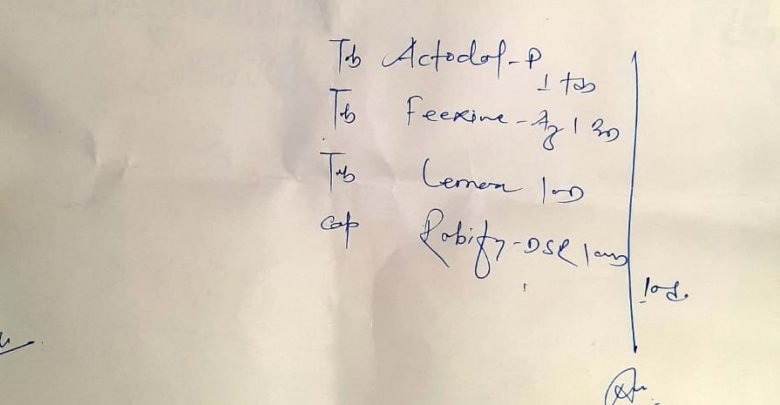 Tab Actodol-P
1 tab
Tab Feexime-Az 1 BD
Tab Lemon 1 OD
Cap Rabify-DSR 1 OD
10d.